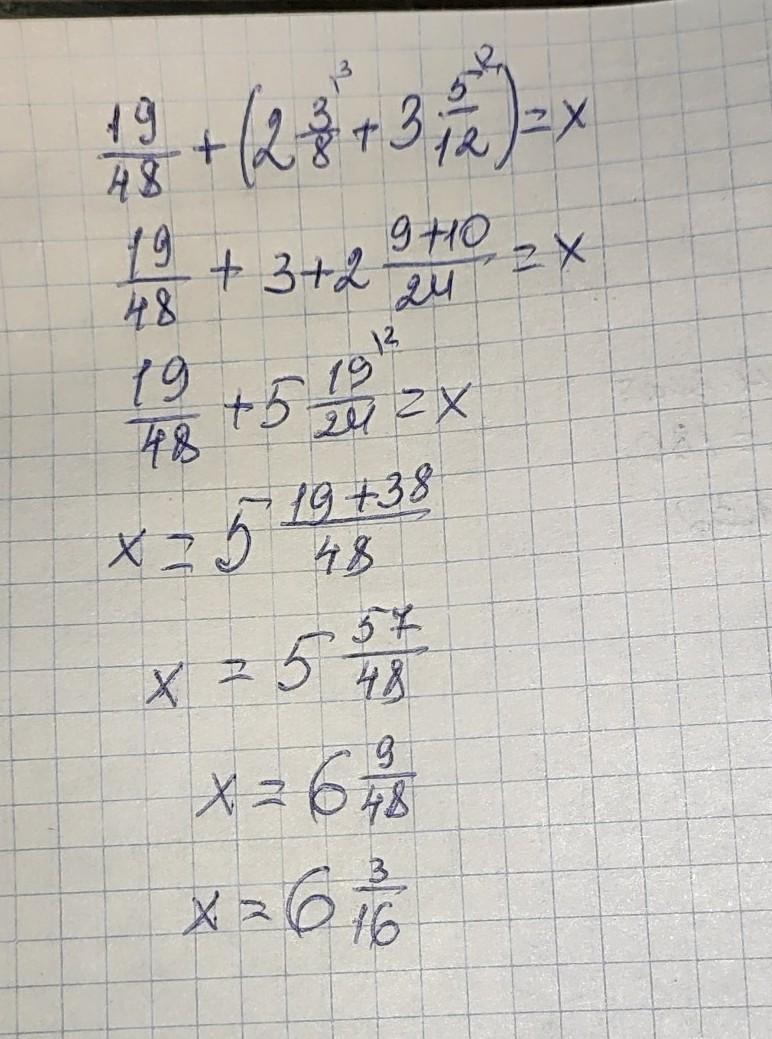 19/48 + (2 3/8 \3 + 3 5/12 \2) = x
19/48 + 3+2 9+10/24 = x
19/48 + 5 19/24 \2 = x
x = 5 19+38/48
x = 5 57/48
x = 6 9/48
x = 6 3/16